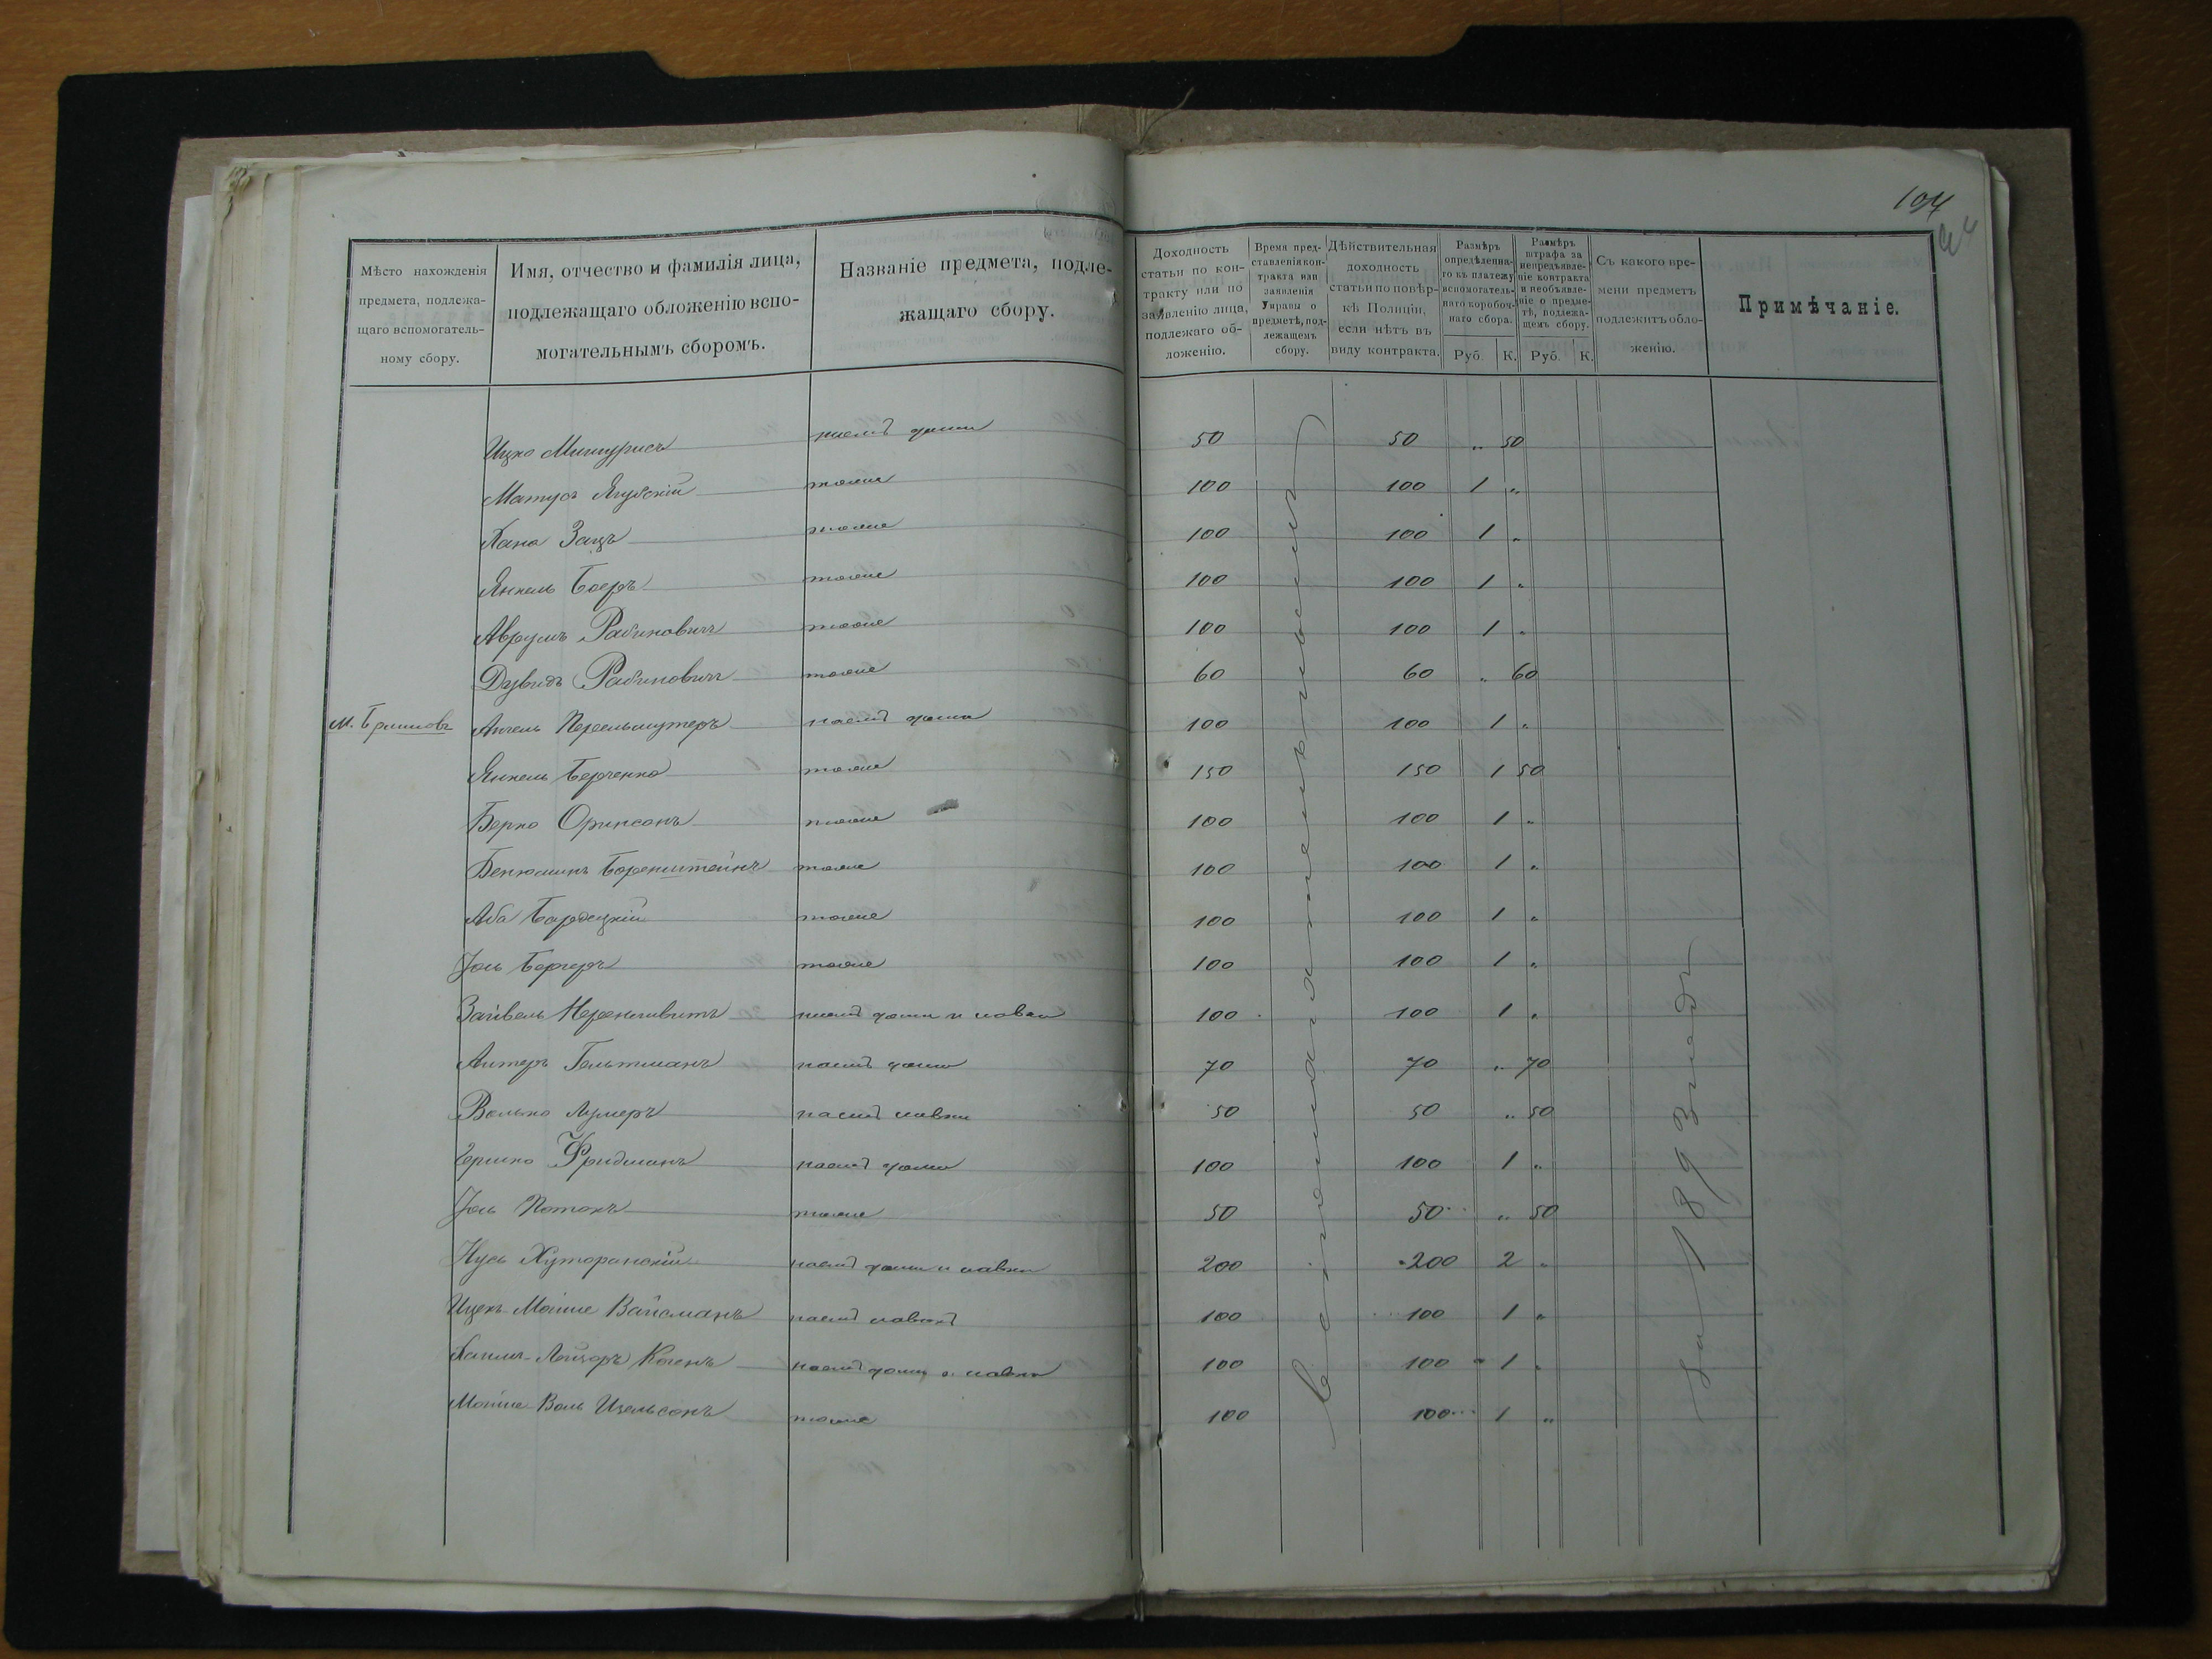 104
Мѣсто нахожденія
предмета, подлежа-
щаго вспомогатель-
ному сбору.
Имя, отчество и фамилія лица,
подлежащаго обложенію вспо-
могательнымъ сборомъ.
Названіе предмета, подле-
жащаго сбору.
Доходность
статьи по кон-
тракту или по
заявленію лица,
подлежаго об-
ложенію.
Время пред-
ставленія кон-
тракта или
заявленія
Управы о
предметѣ, под-
лежащемъ
сбору.
Дѣйствительная
доходность
статьи по повѣр-
кѣ Полиціи,
если нѣтъ въ
виду контракта.
Размѣръ
опредѣленна-
го къ платежу
вспомогатель-
наго коробоч-
наго сбора.
Руб. К.
Размѣръ
штрафа за
непредъявле-
ніе контракта
и необъявле-
ніе о предме-
тѣ, подлежа-
щемъ сбору.
Руб. К.
Съ какого вре-
мени предметъ
подлежитъ обло-
женію.
Примѣчаніе.
Ицко наемъ дома 50 50 „ 50
Матусъ Ягубскій тоже 100 100 1 „
Хана Зацъ тоже 100 100 1 „
Янкель Боеръ тоже 100 100 1 „
Аврумъ Рабиновичъ тоже 100 100 1 „
Дувидъ Рабиновичъ тоже 60 60 „ 60
м. Брилловъ Анчель Перельмутеръ наемъ дома 100 100 1 „
Янкель Берченко тоже 150 150 1 50
Берко тоже 100 100 1 „
Бенюминъ Боренштейнъ тоже 100 100 1 „
Аба Бардецкій тоже 100 100 1 „
Іось Бергеръ тоже 100 100 1 „
Зайвель наемъ дома и лавки 100 100 1 „
Алтеръ Гельтманъ наемъ дома 70 70 „ 70
Волько Лумеръ наемъ лавки 50 50 „ 50
Гершко Фридманъ наемъ дома 100 100 1 „
Іось Потокъ тоже 50 50 „ 50
Нусь Хуторанскій наемъ дома и лавки 200 200 2 „
Ицекъ-Мойше Вайсманъ наемъ лавокъ 100 100 1 „
Лейзоръ Коганъ наемъ дома и лавки 100 100 1 „
Мойше-Воль Ицельсонъ тоже 100 100 1 „
За 1893 годъ